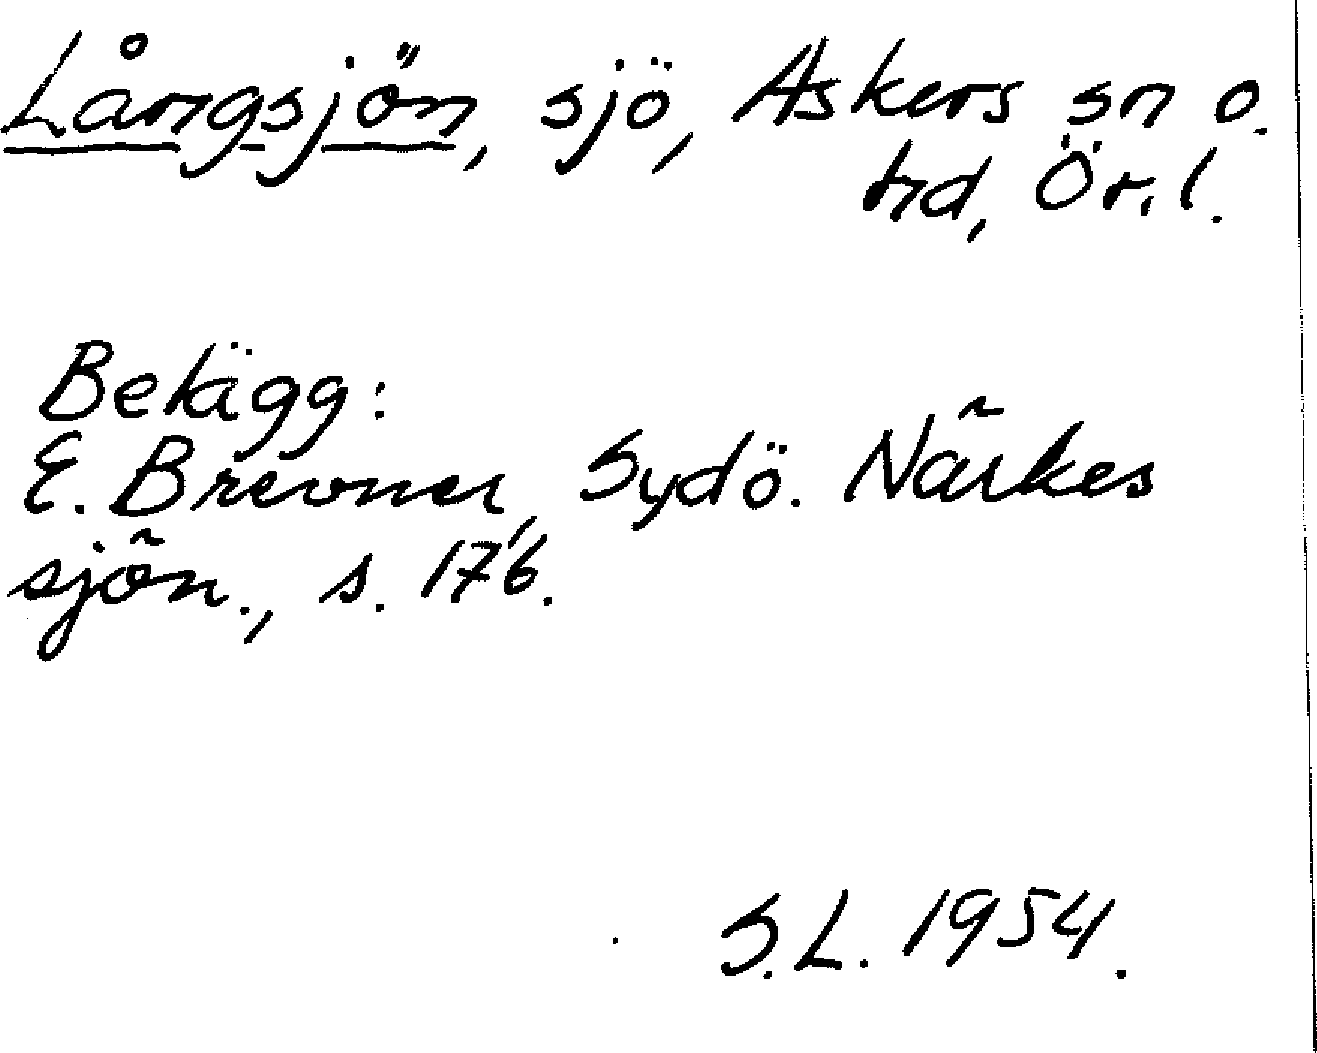 Långsjön, sjö, Askers sn o.
hd, Ör. l.
Belägg:
E. Brevner, Sydö. Närkes
sjön., s. 176.
S. L. 1954.